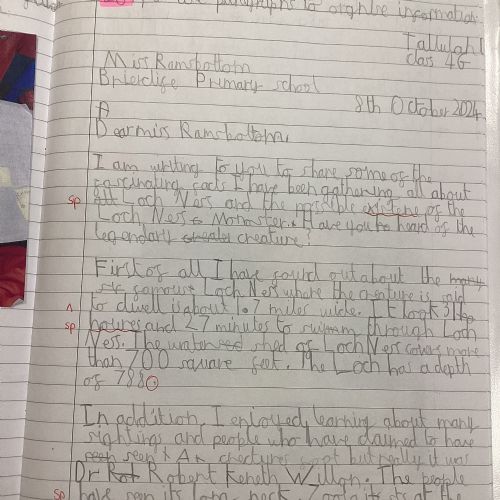 use paragraphs to organise information.
Tallulah
class 4G
Miss Ramsbottom
Brierclife Primary school
8th October 2024
Dear miss Ramsbottom,
I am writing to you to share some of the
fascinating facts I have been gathering all about
sp Loch Ness and the possible of the
Loch Ness Monaster. Have you heard of the
legendary creature!
First of all I have found out about the
famous Loch Ness where the creature is said
to dwell is about 1.7 miles wide. It took
sp houres and 27 minutes to swim through Loch
Ness. The watershed of Loch Ness covers more
than 700 square feet. The Loch has a depth
of 788.
In addition, I enjoyed learning about many
sightings and people who have claimed to have
seen creatures foot but really it was
Dr Robert Keneth Willson. The people
sp have seen its long neck